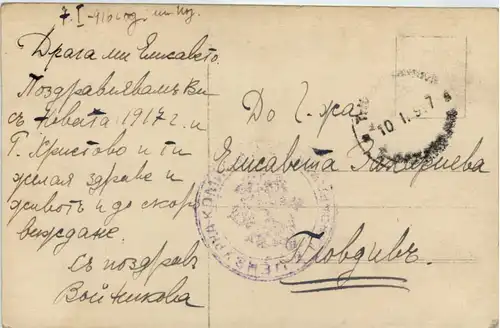 Драга ми Елисавето.
Поздравиявамъ Ви
съ Новата 1917 г. и
Р. Христово и ти
желая здраве и
животъ и до скор
виждане.
съ поздрав
Войникова
До Г-жа
Елисавета Захариева
Пловдивъ.
10.1.917